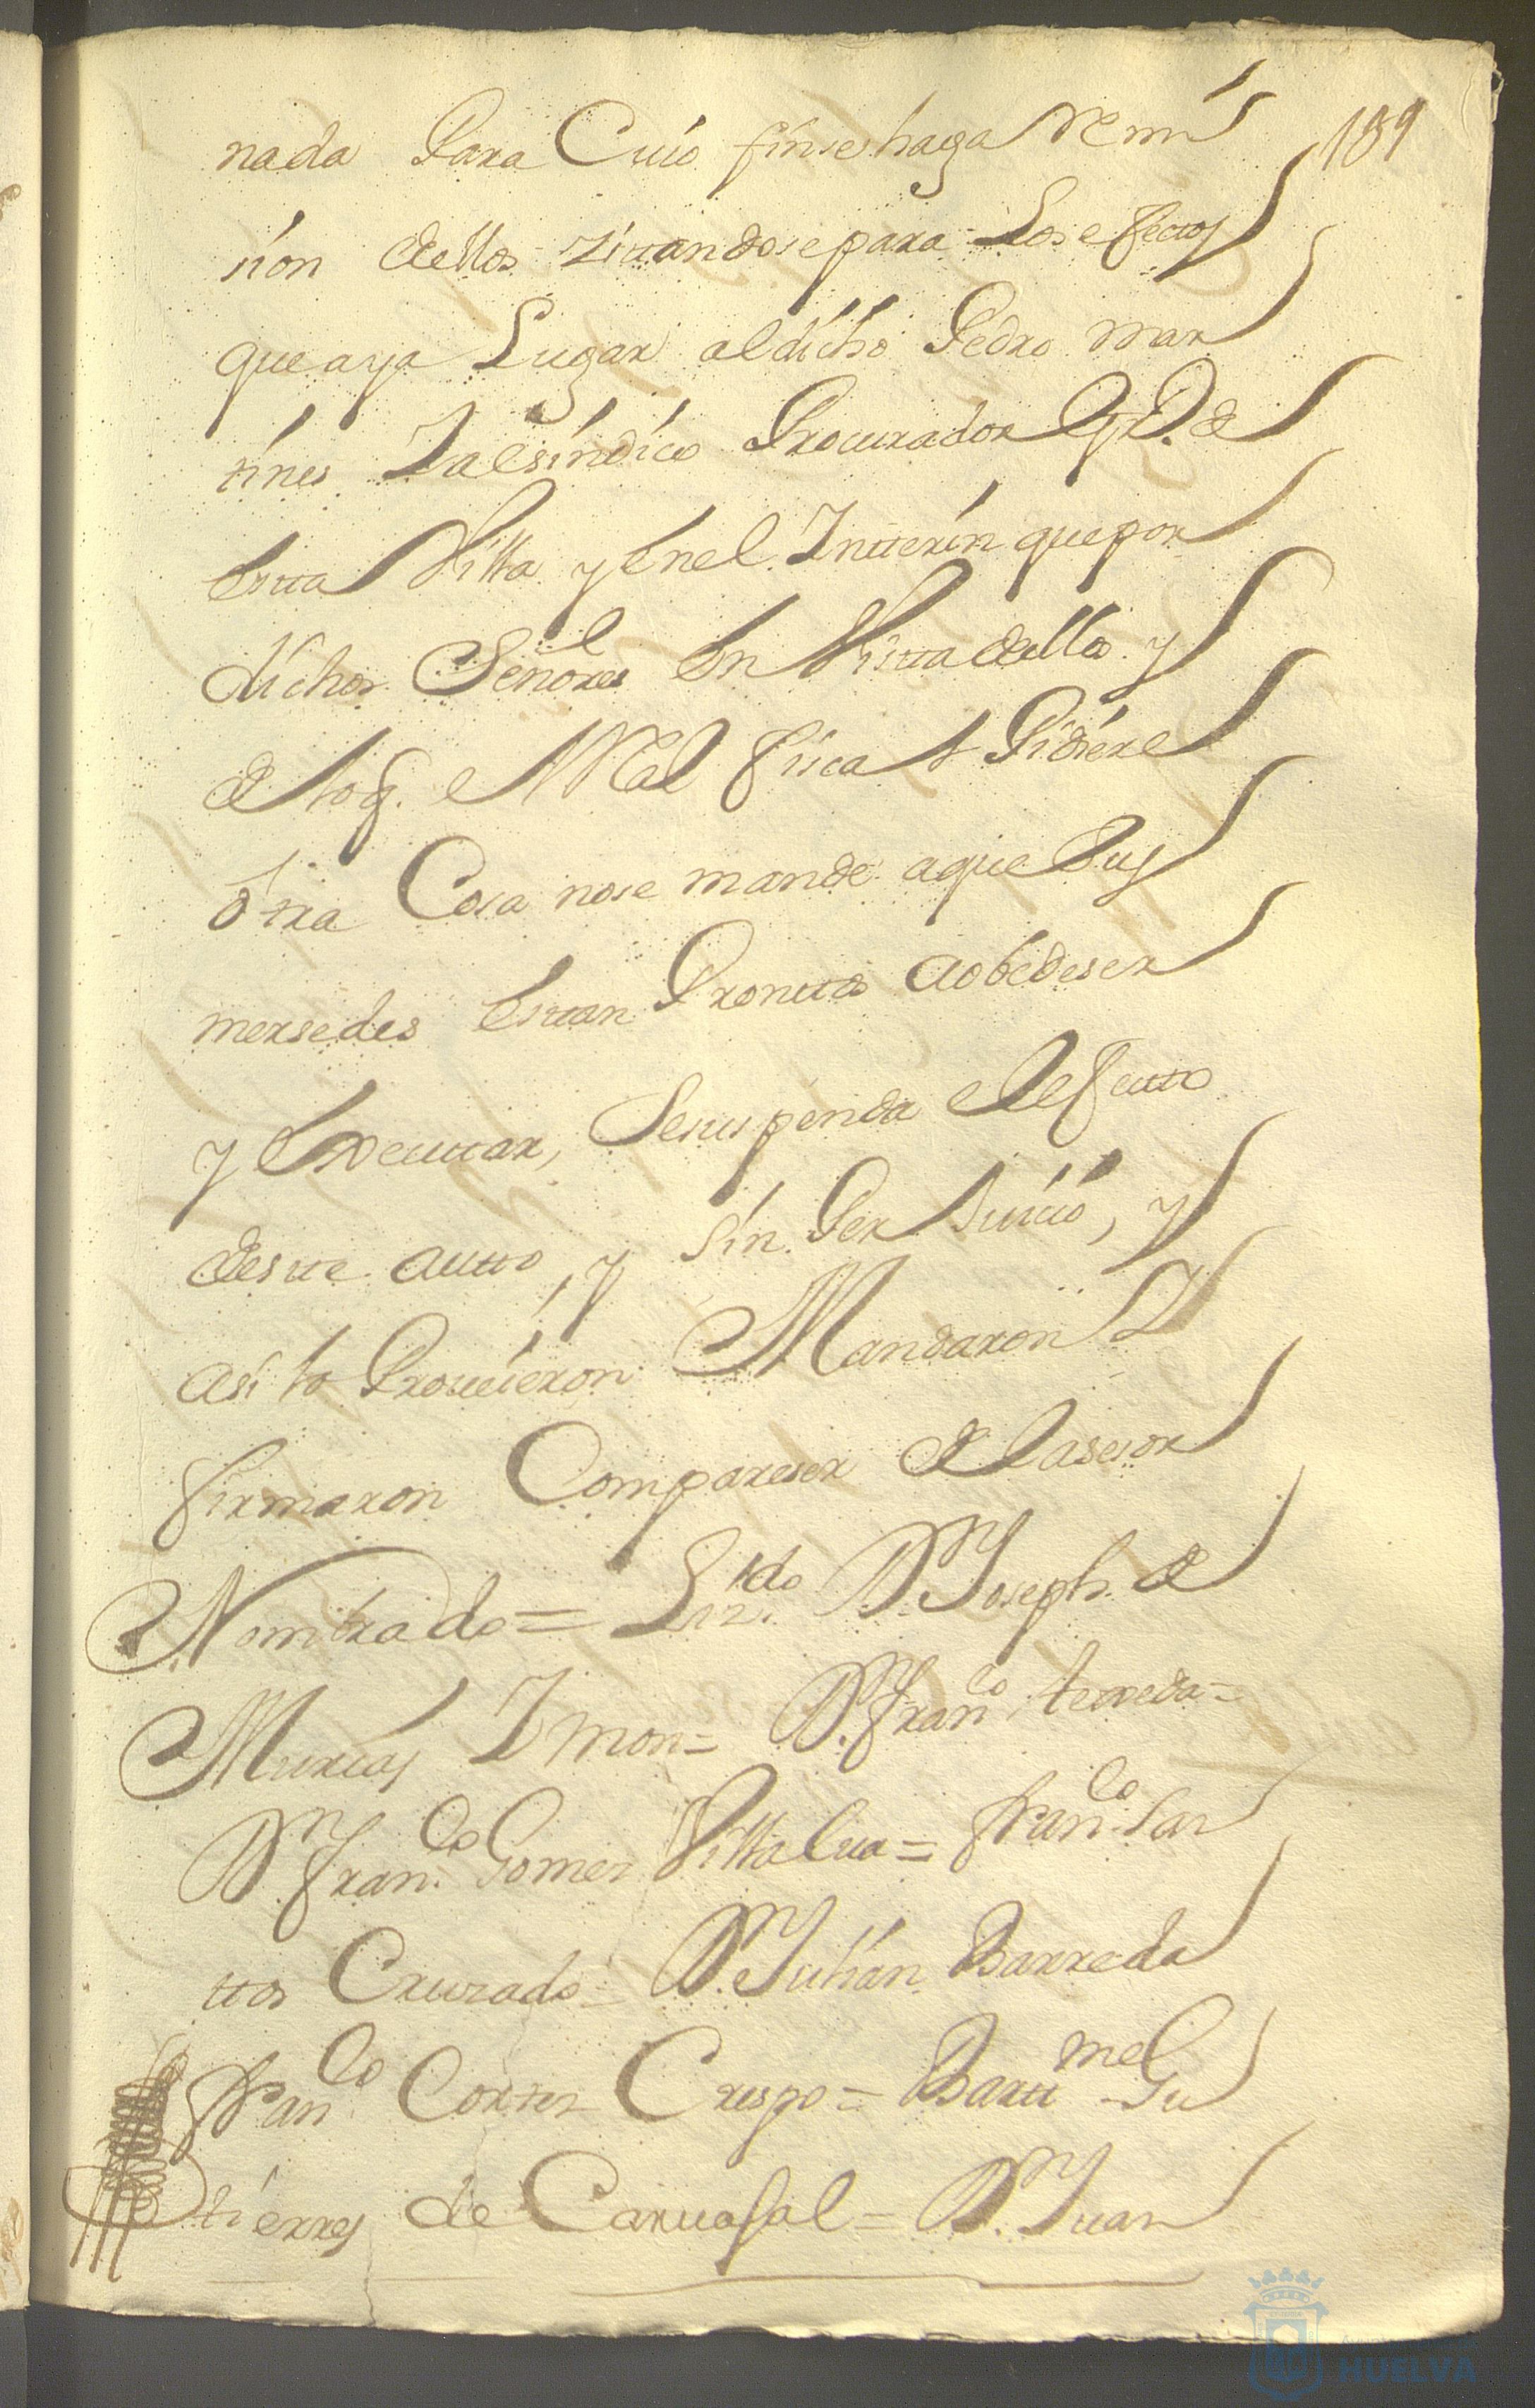 189
nada Para Cuio fin se haga remi
sion dellos zittandose para Los efectos
que aya Lugar al dicho Pedro Mar
tines Y al síndico Procurador Gl. de
Estta Villa y Enel Intterin que por
dichos Señores En Vistta dello y
de lo q. el Rl fiscal Pidiere
otra Cosa no se mande a que Sus
mersedes Esttan Prontto aobedeser
y Executtar, Sesuspenda el efectto
destte autto, y Sin Perjuicio, y
asi lo Proveieron Mandaron Y
firmaron Compareser del asesor
Nombrado = Lizdo. Dn. Joseph de
Murcias Y mon = Dn. Franco texeda =
Dn. Franco. Gomez Villalua = Franco. San
ttos Cruzado = Dn. Julián Barreda
Franco. Cortes Crespo = Barttme Gu
tierres de Carvajal = Dn. Juan
HUELVA